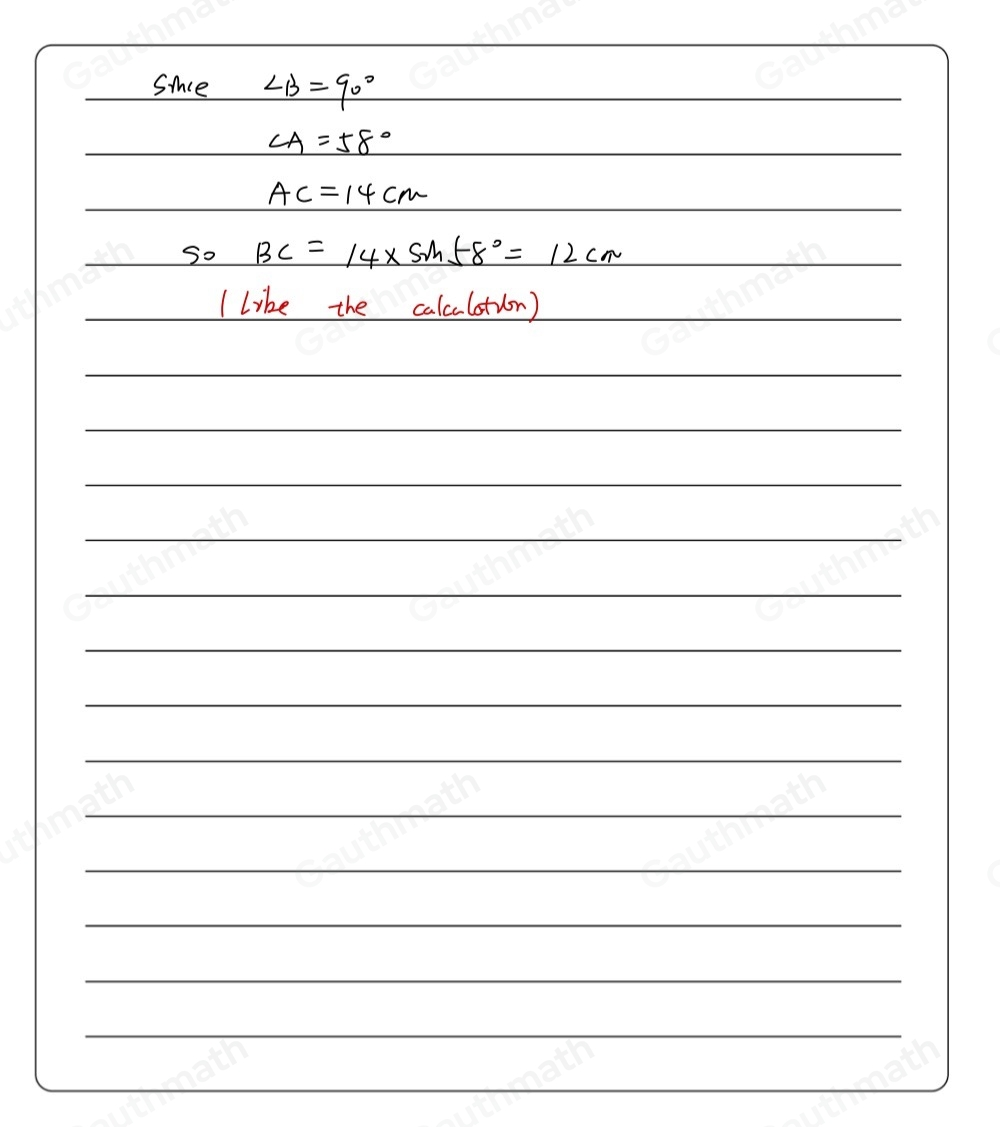 Since ∠B = 90°
∠A = 58°
AC = 14 cm
So BC = 14 × sin 58° = 12 cm
( Like the calculation )